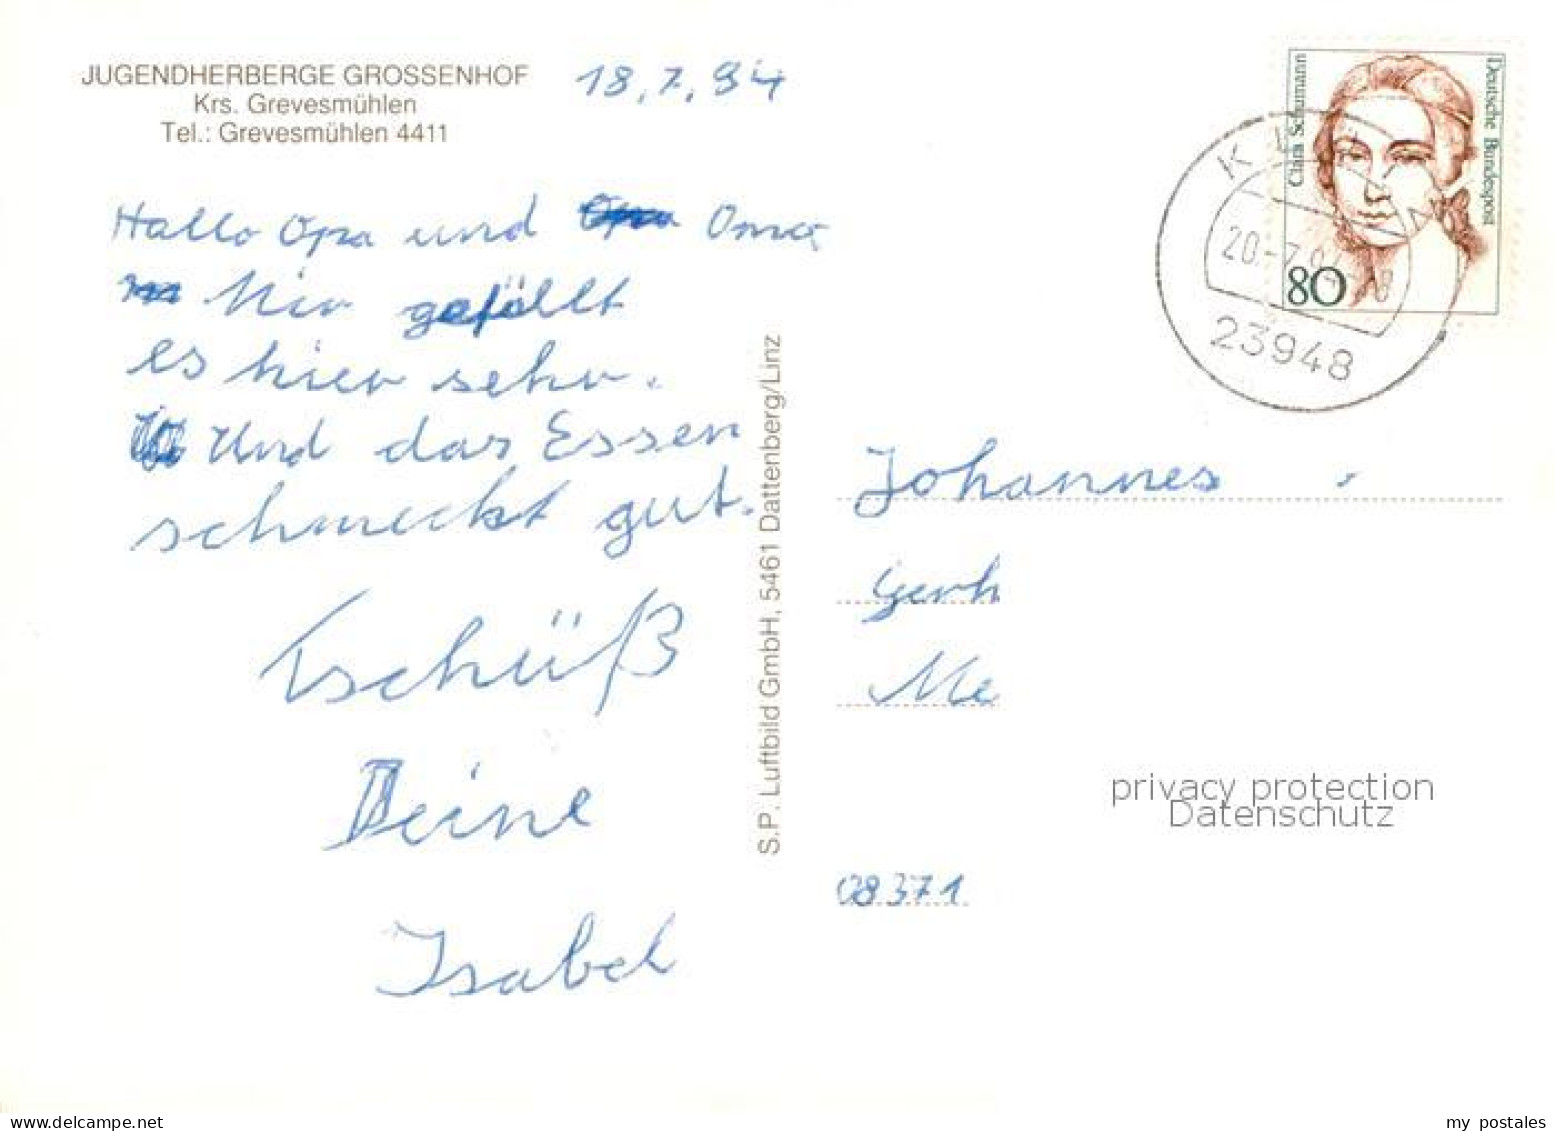 JUGENDHERBERGE GROSSENHOF
Krs. Grevesmühlen
Tel.: Grevesmühlen 4411
18.7.94
Hallo Opa und Oma
Mir gefällt
es hier sehr.
Und das Essen
schmeckt gut.
Tschüß
Deine
Isabel
S.P. Luftbild GmbH, 5461 Dattenberg/Linz
Clara Schumann
Deutsche Bundespost
80
20.-7.
23948
Johannes
Gerh
Me
08371
privacy protection
Datenschutz
my postales